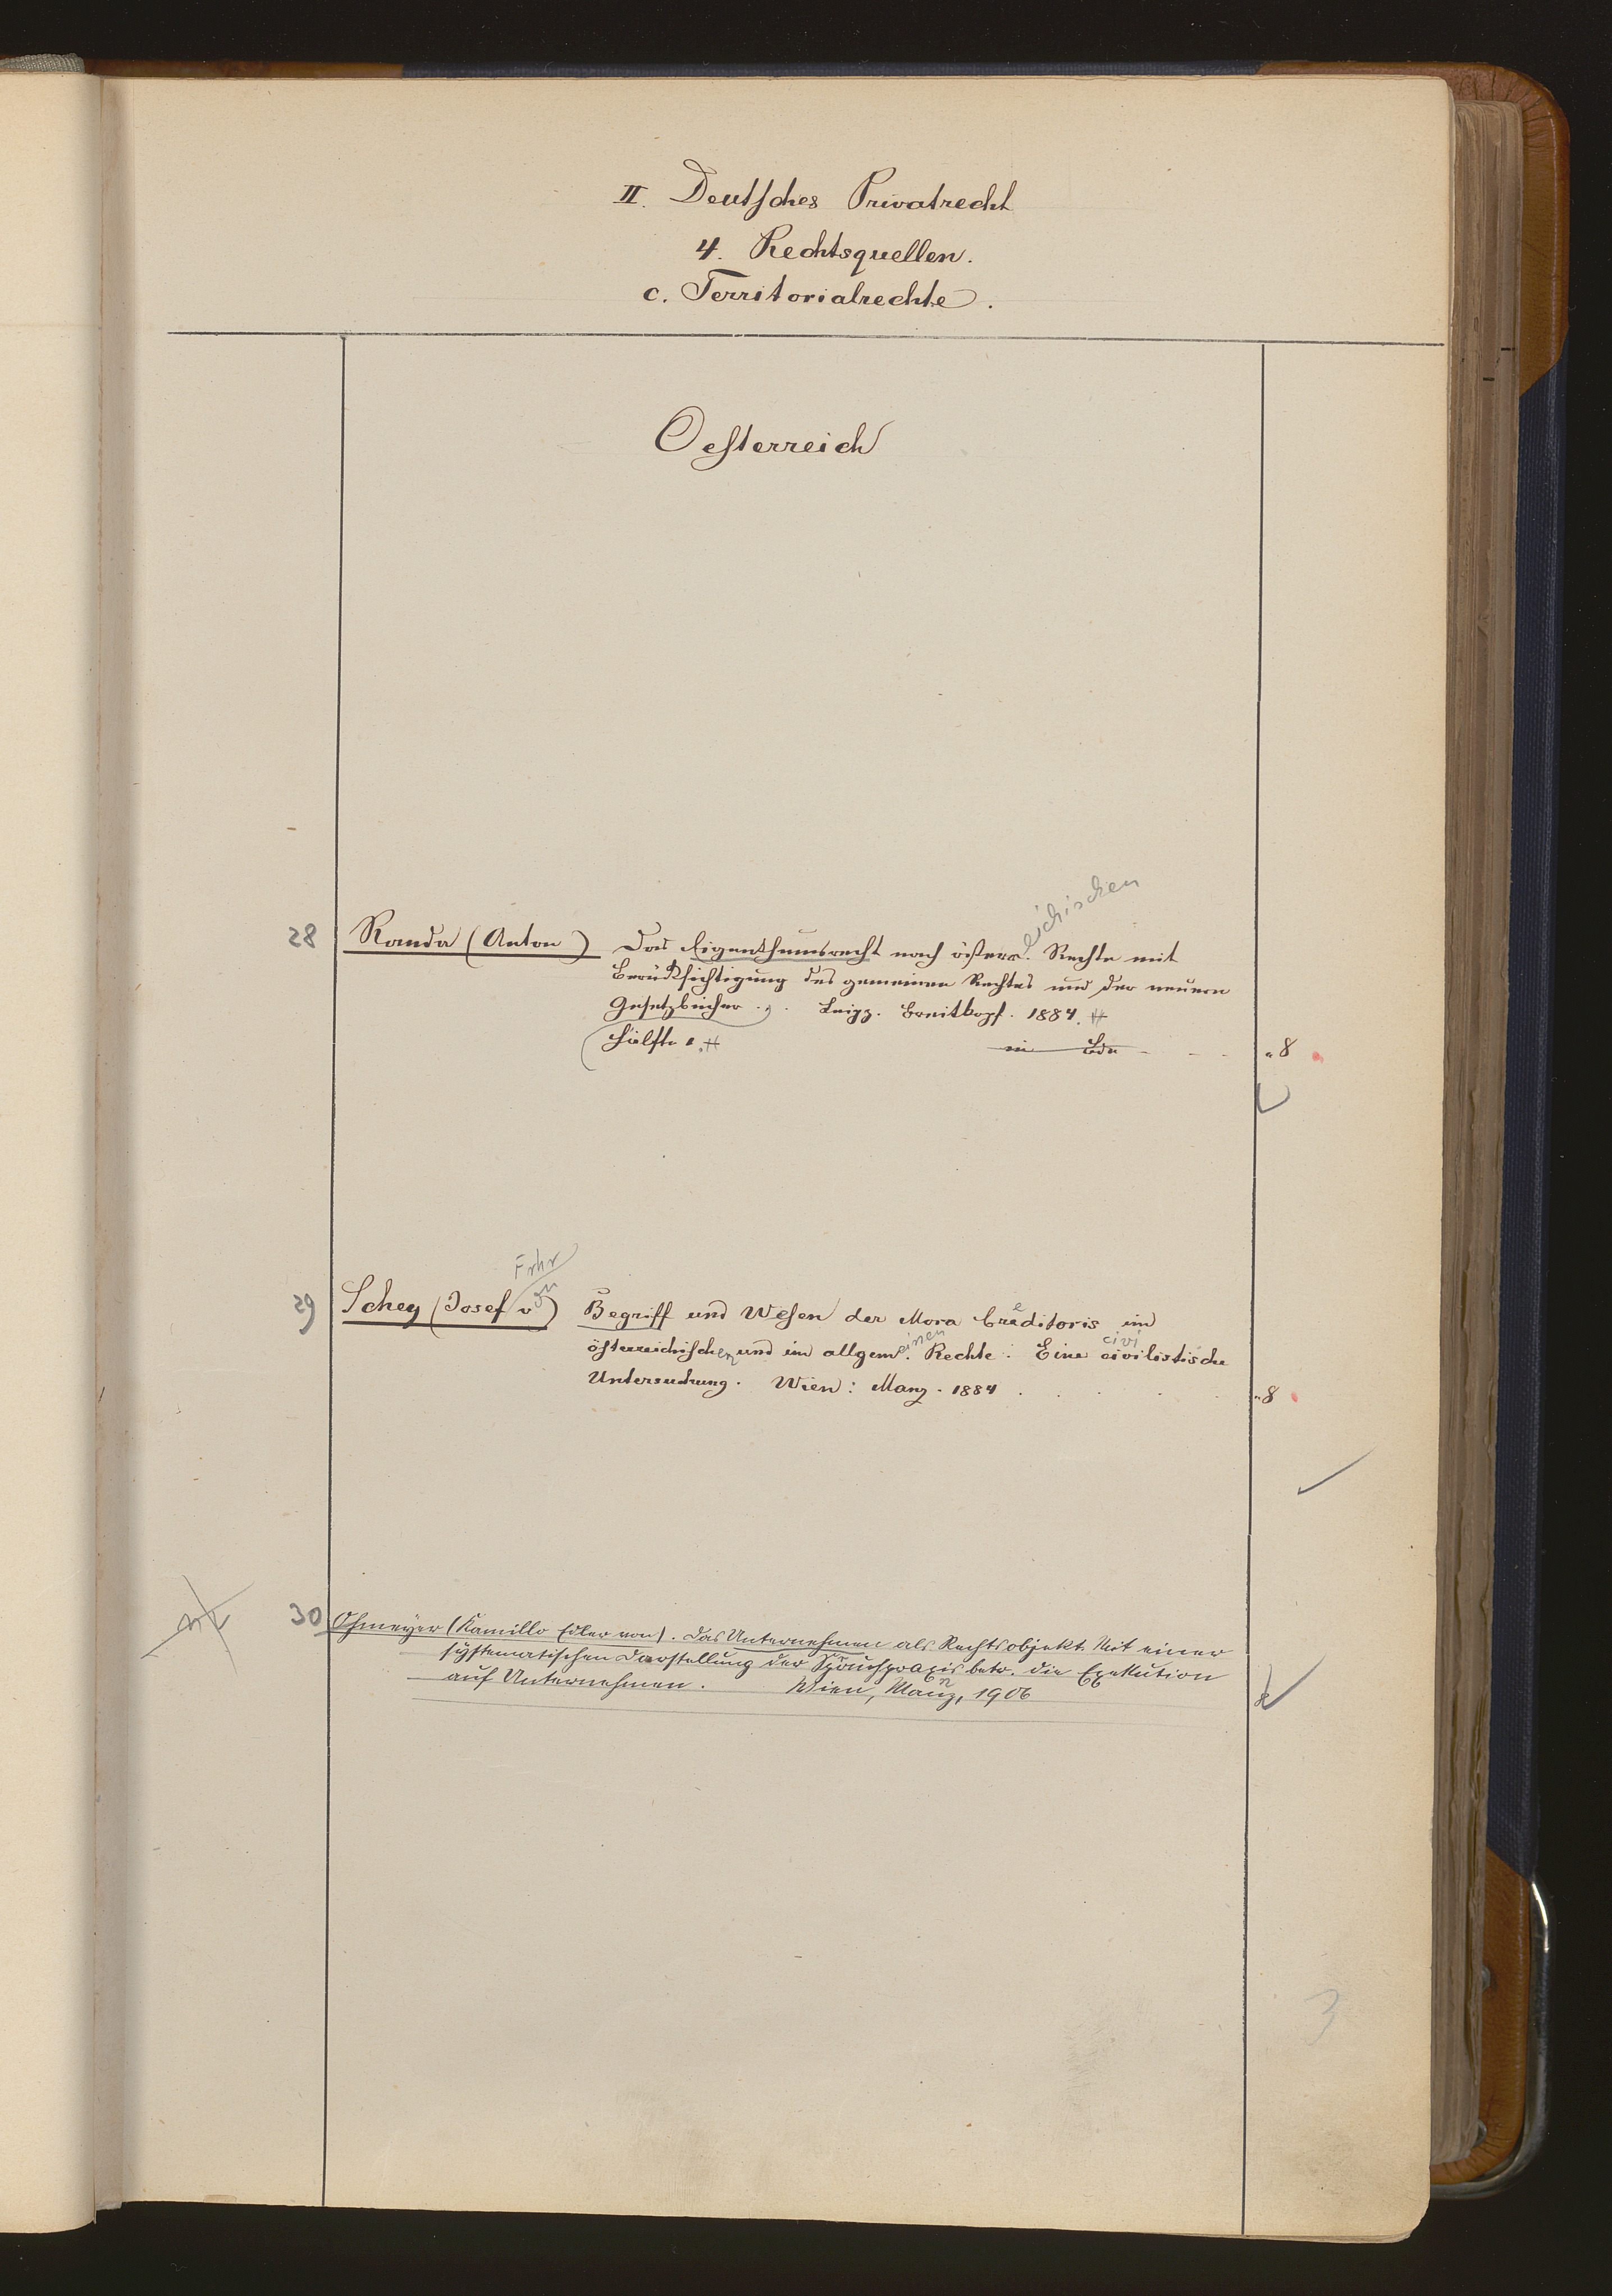 II. Deutsches Privatrecht
4. Rechtsquellen.
c. Territorialrechte.
Oesterreich
eichischen
28 Randa (Anton) Das Eigenthumsrecht nach österr. Rechte mit
Berücksichtigung des gemeinen Rechtes und der neuern
Gesetzbücher. Leipz. Breitkopf. 1884.
(Hälfte 1. in Bdn "8
Frhr
29 Schey (Josef v) Begriff und Wesen der Mora Creditoris im
österreichischen und im allgemeinen Rechte: Eine civilistische
Untersuchung. Wien: Manz. 1884 "8
30 Ohmeyer (Kamillo Edler von). Das Unternehmen als Rechtsobjekt. Mit einer
systematischen Darstellung der Spruchpraxis betr. die Exekution
auf Unternehmen. Wien, Manz, 1906
3